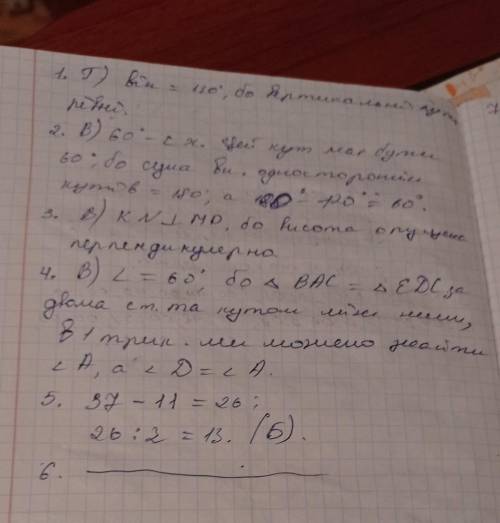 1. Г) він = 130°, бо вертикальні кути
рівні.
2. В) 60° - ∠ х. Цей кут має бути
60°, бо сума вн. односторонніх
кутів = 180°, а - 120° = 60°.
3. В) KN⊥MD, бо висота опущена
перпендикулярно.
4. В) ∠ = 60°, бо △ BAC = △ EDC за
двома ст. та кутом між ними,
В 1 трик. ми можемо знайти
∠ A, а ∠ D = ∠ A.
5. 37 - 11 = 26;
26 : 2 = 13. (Б).
6.